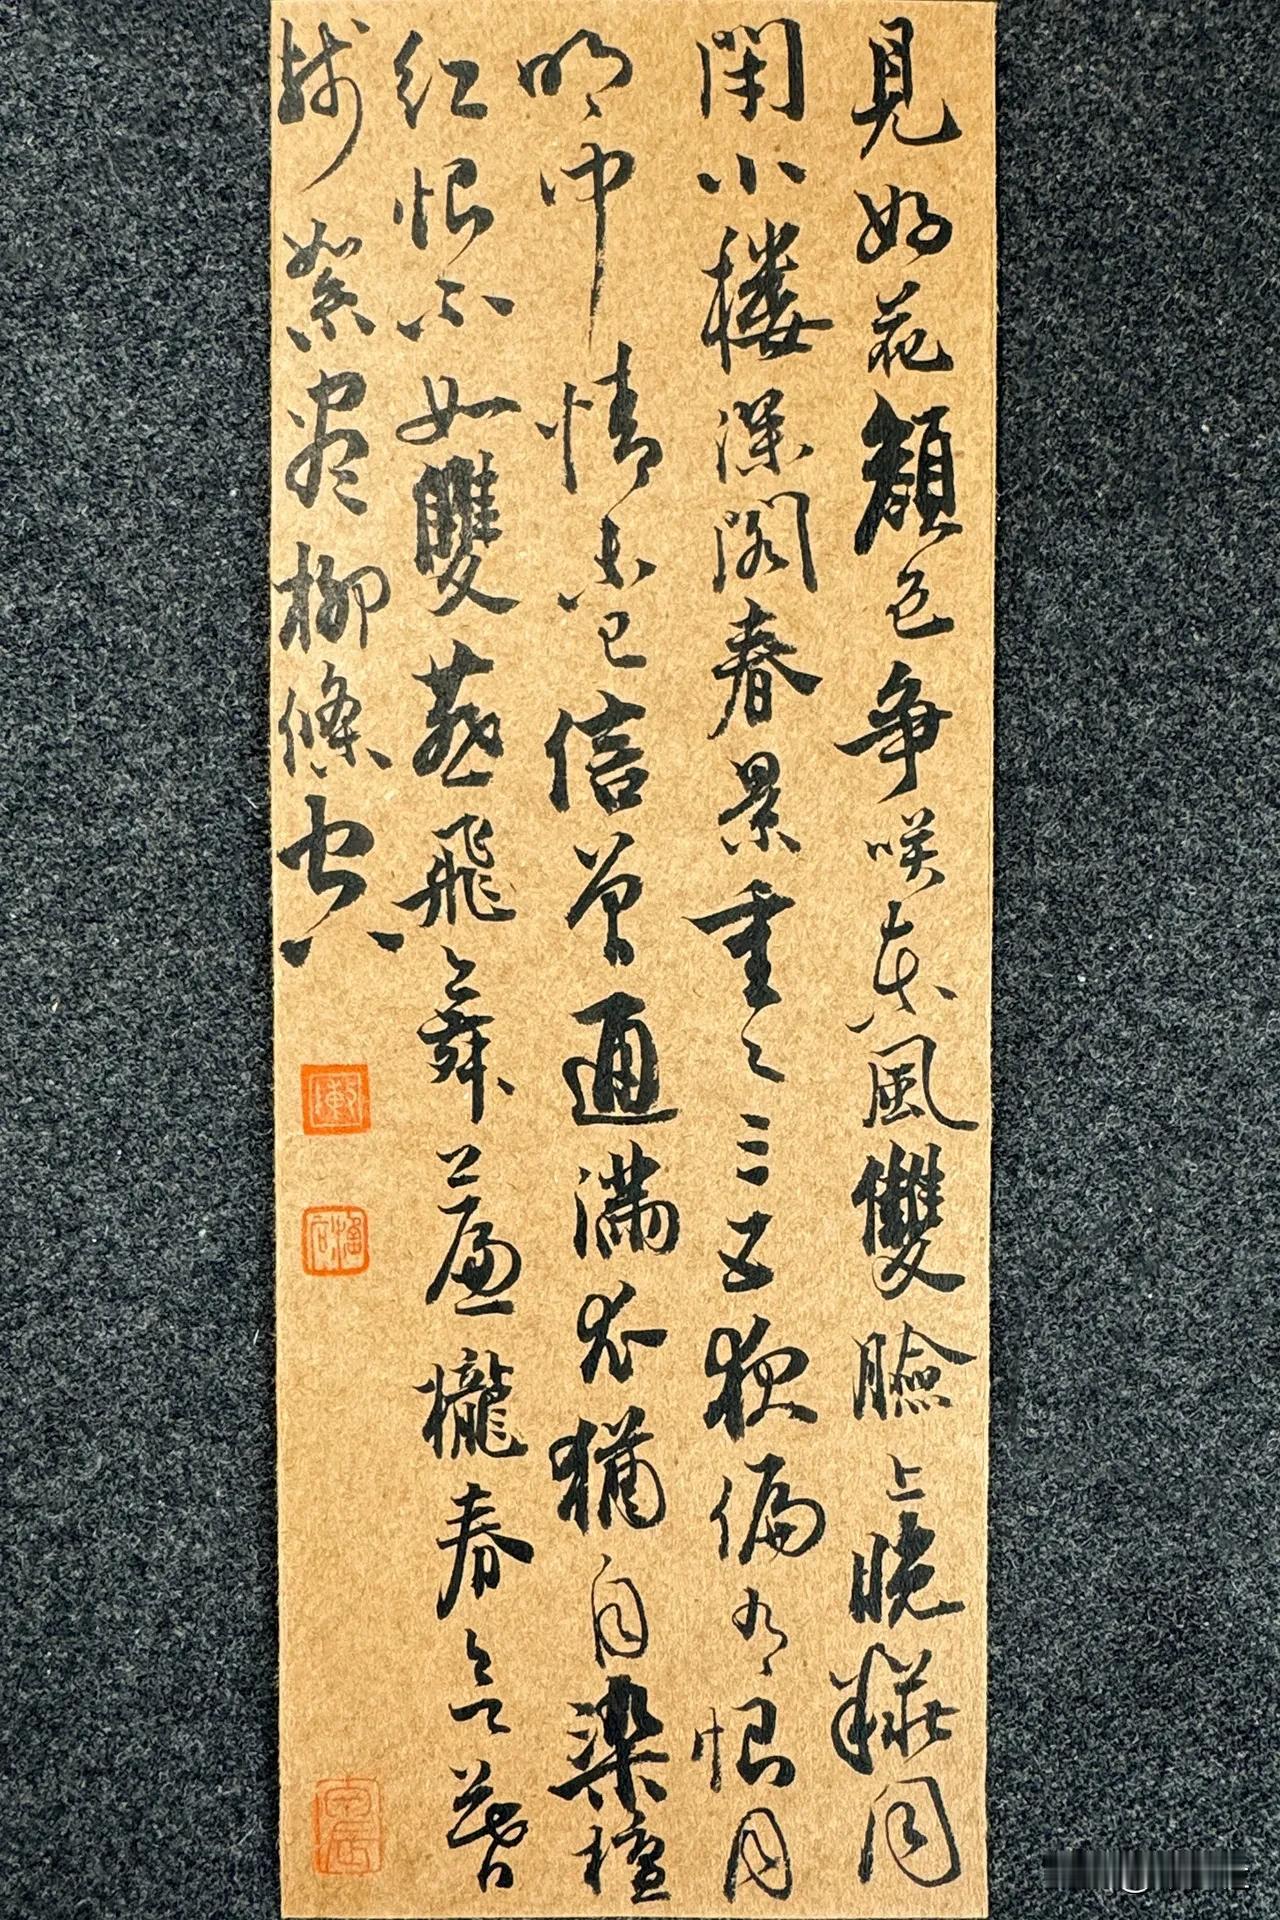 見好花顏色争咲東風雙臉上晚粧同
閇小樓深閣春景重〻三五夜偏有恨月
明中情未已信曾通滿衣猶自染檀
紅恨不如雙燕飛舞簾櫳春欲暮
殘絮盡柳條空